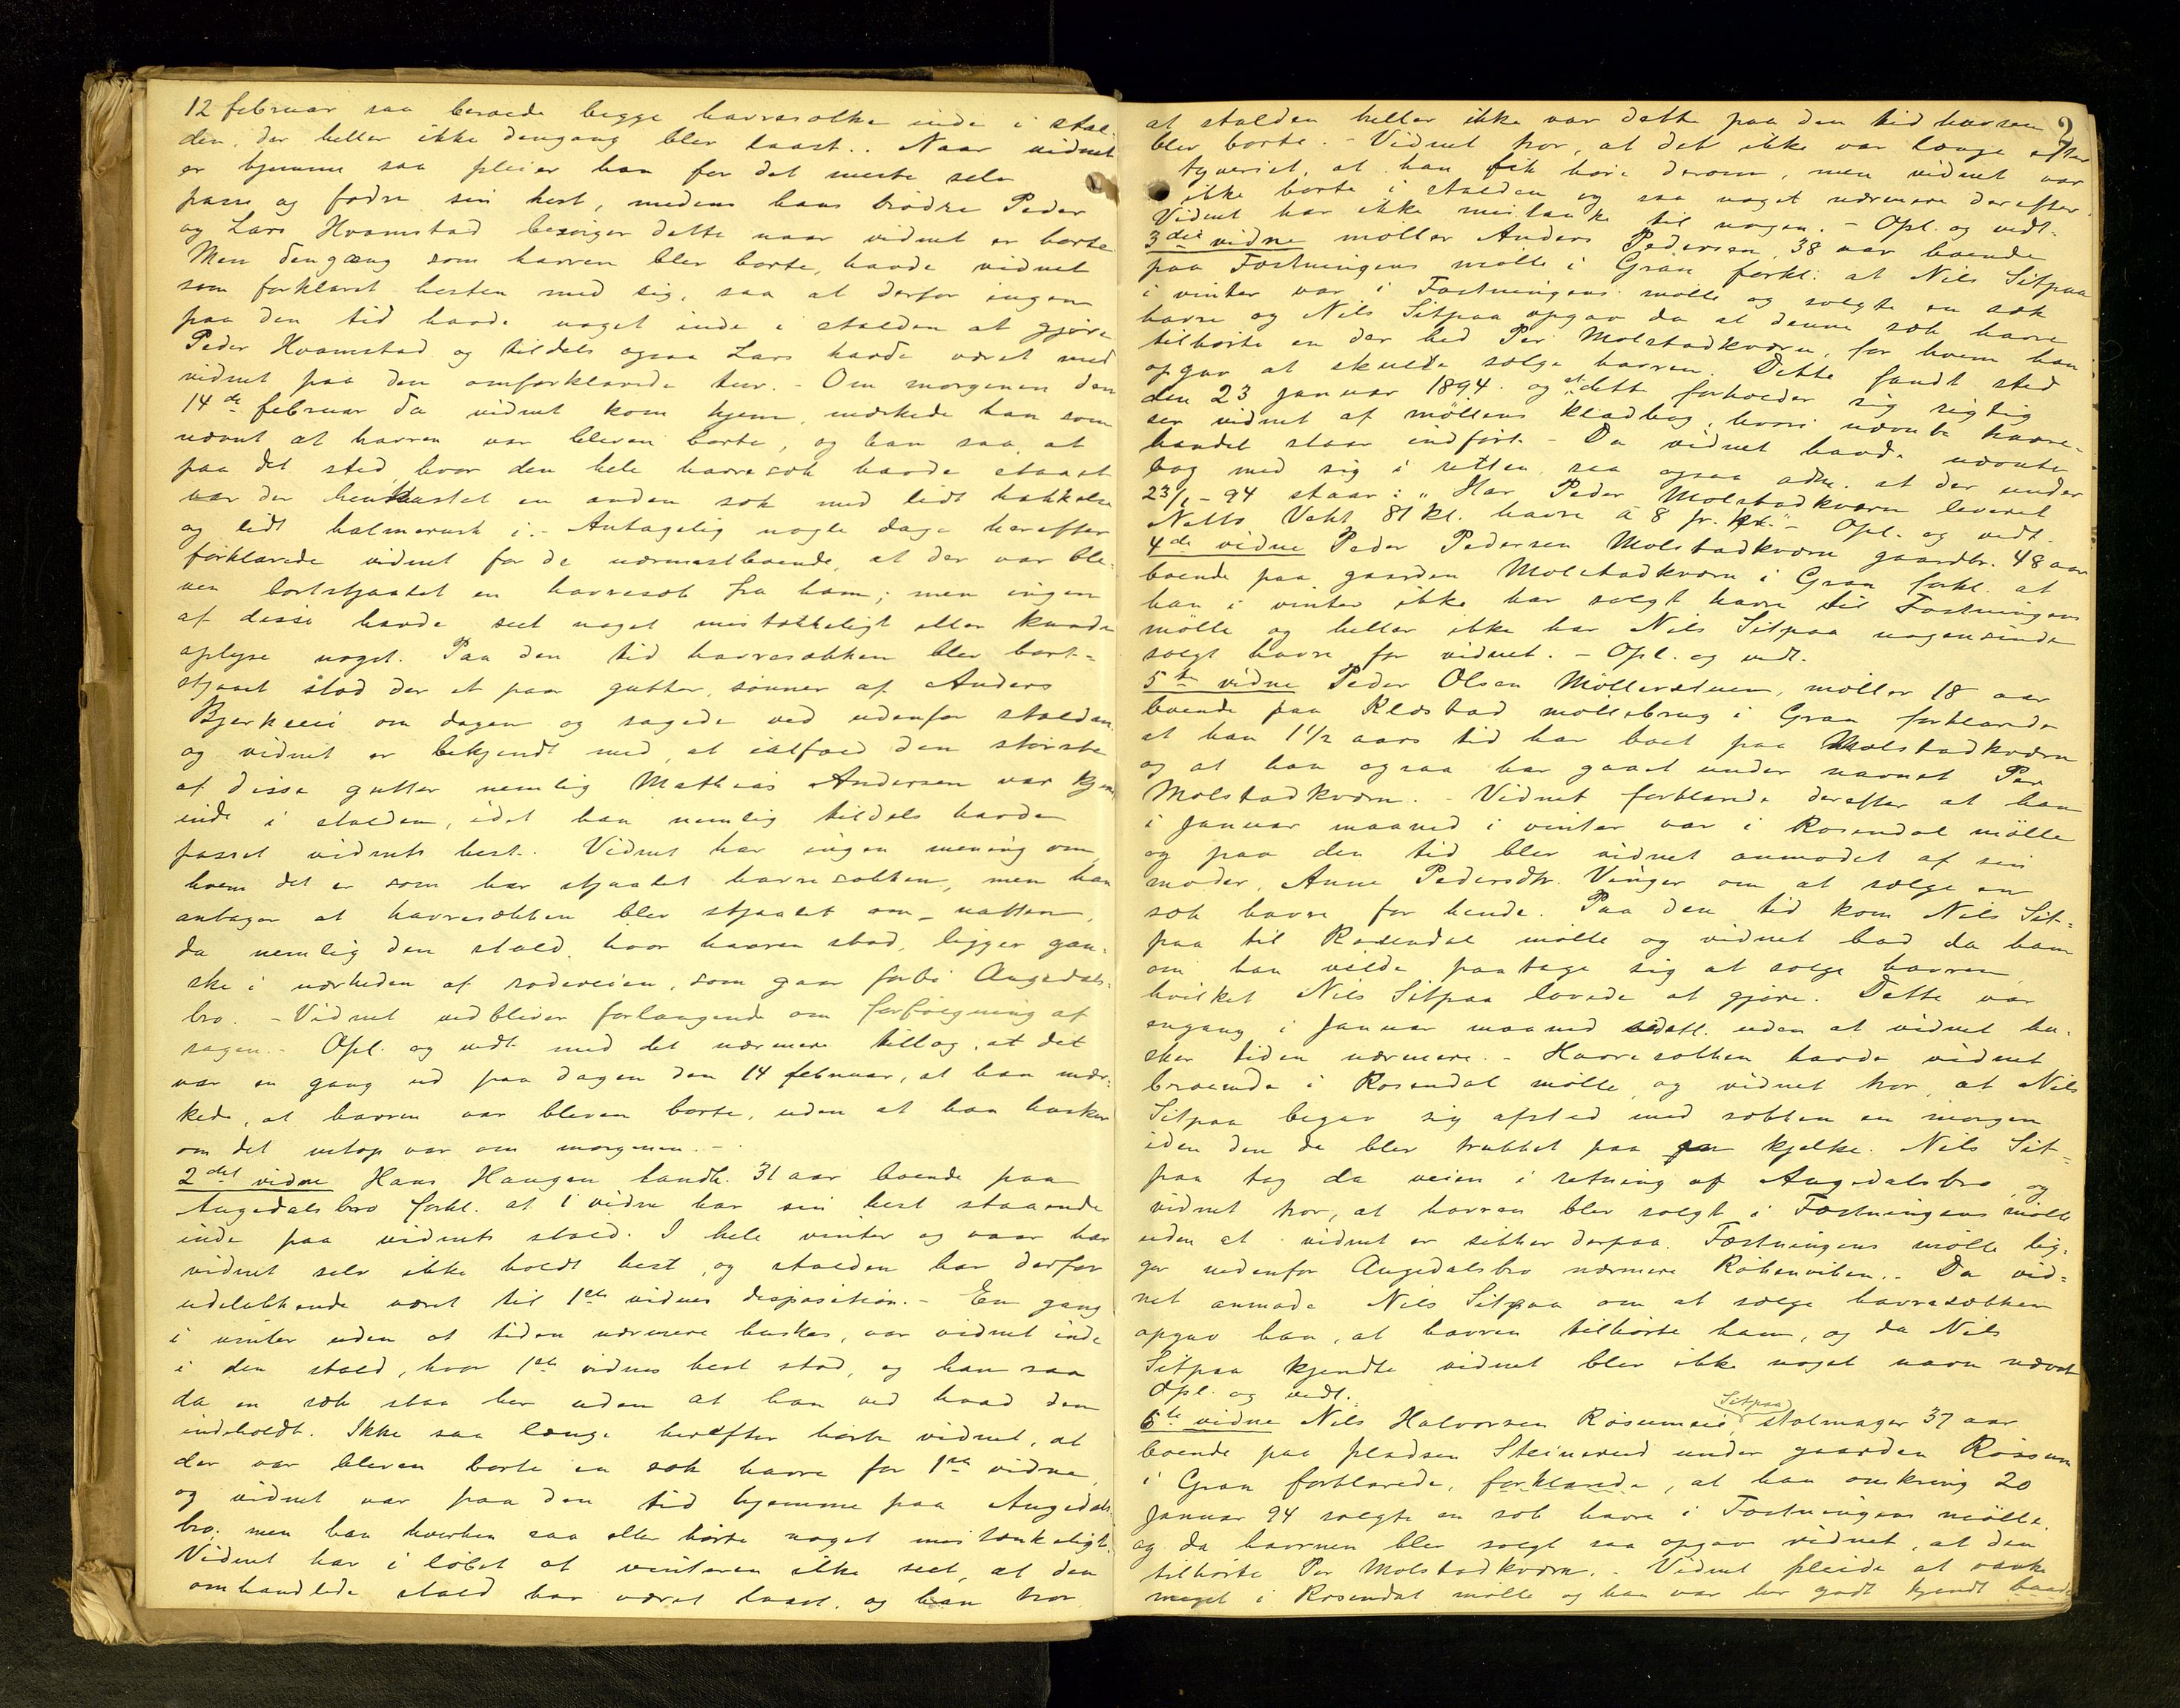 12 februar saa beroede begge havresække inde i stal-
den, der heller ikke dengang blev laast. Naar vidnet
er hjemme saa pleier han for det meste selv
passe og fodre sin hest, medens hans brödre Peder
og Lars Hvamstad besörger dette naar vidnet er borte
Men dengang som havren blev borte, havde vidnet
som forklaret hesten med sig, saa at derfor ingen
paa den tid havde noget inde i stalden at gjöre
Peder Hvamstad og tildels ogsaa Lars havde været med
vidnet paa den omforklarede tur. - Om morgenen den
14de februar da vidnet kom hjem, mærkede han som
nævnt at havren var bleven borte, og han saa, at
paa det sted, hvor den hele havresæk havde staaet
var der henkastet en anden sæk med lidt hakkelse
og lidt halmerusk i. - Antagelig nogle dage herefter
forklarede vidnet for de nærmestboende, at der var ble-
ven bortstjaalet en havresæk fra ham; men ingen
af disse havde seet noget mistænkeligt eller kunde
oplyse noget. Paa den tid havresækken blev bort-
stjaalet stod der et par gutter, sönner af Anders
Bjerkeeie om dagen og sagede ved udenfor stalden
og vidnet er bekjendt med, at ialfald den störste
af disse gutter nemlig Mathias Andersen var kjent
inde i stalden, idet han nemlig tildels havde
passet vidnets hest. Vidnet har ingen mening om,
hvem det er som har stjaalet havresækken, men han
antager at havresækken blev stjaalet om natten,
da nemlig den stald, hvor havren stod, ligger gan-
ske i nærheden af rodeveien, som gaar forbi Augedals-
bro. - Vidnet vedbliver forlangende om forfölgning af
sagen. - Opl. og vedt. med det nærmere tillæg, at det
var en gang ud paa dagen den 14 februar, at han mær-
kede, at havren var bleven borte, uden at han husker
om det netop var om morgenen. -
2det vidne Hans Haugen landh. 31 aar boende paa
Augedalsbro forkl. at 1 vidne har sin hest staaende
inde paa vidnets stald. I hele vinter og vaar har
vidnet selv ikke holdt hest, og stalden har derfor
udelukkende været til 1ste vidnes disposition. - En gang
i vinter uden at tiden nærmere huskes, var vidnet inde
i den stald, hvor 1ste vidnes hest stod, og han saa
da en sæk staa her uden at han ved hvad den
indeholdt. Ikke saa længe herefter hörte vidnet, at
der var bleven borte en sæk havre for 1ste vidne,
og vidnet var paa den tid hjemme paa Augedals-
bro; men han hverken saa eller hörte noget mistænkeligt.
Vidnet har i löbet af vinteren ikke seet, at den
omhandlede stald har været laast, og han tror
2
at stalden heller ikke var dette paa den tid havren
blev borte. - Vidnet tror, at det ikke var længe efter
tyveriet, at han fik höre derom, men vidnet var
ikke borte i stalden og saa noget nærmere derefter.
Vidnet har ikke mistanke til nogen. - Opl. og vedt.
3die vidne möller Anders Pedersen, 38 aar boende
paa Fæstningens mölle i Gran forkl. at Nils Sitpaa
i vinter var i Fæstningens mölle og solgte en sæk
havre og Nils Sitpaa opgav da at denne sæk havre
tilhörte en der hed Per Molstadkværn, for hvem han
opgav at skulle sælge havren. Dette fandt sted
den 23 januar 1894. og at dette forholder sig rigtig
ser vidnet af möllens kladbog, hvori nævnte havre-
handel staar indfört. - Da vidnet havde nævnte
bog med sig i retten, saa ogsaa adm. at der under
23/1-94 staar: "Har Peder Molstadkværn leveret
Netto Vekt 81 kl. havre á 8 pr. kk." - Opl. og vedt.
4de vidne Peder Pedersen Molstadkværn gaardbr. 48 aar
boende paa gaarden Molstadkværn i Gran forkl. at
han i vinter ikke har solgt havre til Fæstningens
mölle og heller ikke har Nils Sitpaa nogensinde
solgt havre for vidnet. - Opl. og vedt.
5te vidne Peder Olsen Möllerstuen, möller 18 aar
boende paa Klæstad möllebrug i Gran forklarede
at han 1 1/2 aars tid har boet paa Molstadkværn
og at han ogsaa har gaaet under navnet Per
Molstadkværn. - Vidnet forklarede derefter at han
i januar maaned i vinter var i Rosendal mölle
og paa den tid blev vidnet anmodet af sin
moder, Anne Pedersdtr. Vinger om at sælge en
sæk havre for hende. Paa den tid kom Nils Sit-
paa til Rosendal mölle og vidnet bad da ham
om han vilde paatage sig at sælge havren,
hvilket Nils Sitpaa lovede at gjöre. Dette var
engang i januar maaned sidstl. uden at vidnet hu-
sker tiden nærmere. - Havresækken havde vidnet
beroende i Rosendal mölle, og vidnet tror, at Nils
Sitpaa begav sig afsted med sækken en morgen
iden den da blev trukket paa en kjelke. Nils Sit-
paa tog da veien i retning af Augedalsbro, og
vidnet tror, at havren blev solgt i Fæstningens mölle
uden at vidnet er sikker derpaa. Fæstningens mölle lig-
ger nedenfor Augedalsbro nærmere Rökenviken. - Da vid-
net anmode Nils Sitpaa om at sælge havresækken
opgav han, at havren tilhörte ham, og da Nils
Sitpaa kjendte vidnet blev ikke noget navn nævnt
Opl. og vedt.
6te vidne Nils Halvorsen Rösumeie, Sitpaa stolmager 37 aar
boende paa pladsen Steinerud under gaarden Rösum
i Gran forklarede, forklarede, at han omkring 20
januar 94 solgte en sæk havre i Fæstningens mölle,
og da havren blev solgt saa opgav vidnet, at den
tilhörte Per Molstadkværn. - Vidnet pleide at vanke
meget i Rosendal mölle og han var her godt kjendt baade